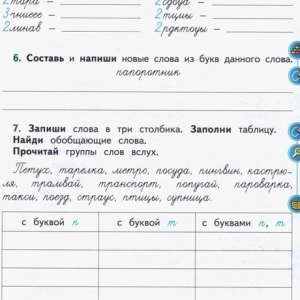 2 тара
3 чниесе
2 минав
2
2 тцшы
2 рдктоуы
6. Составь и напиши новые слова из букв данного слова.
папоротник
7. Запиши слова в три столбика. Заполни таблицу.
Найди обобщающие слова.
Прочитай группы слов вслух.
Петух, тарелка, метро, посуда, пингвин, кастрю-
ля, трамвай, транспорт, попугай, пароварка,
такси, поезд, страус, птицы, супница.
с буквой п
с буквой т
с буквами п, т